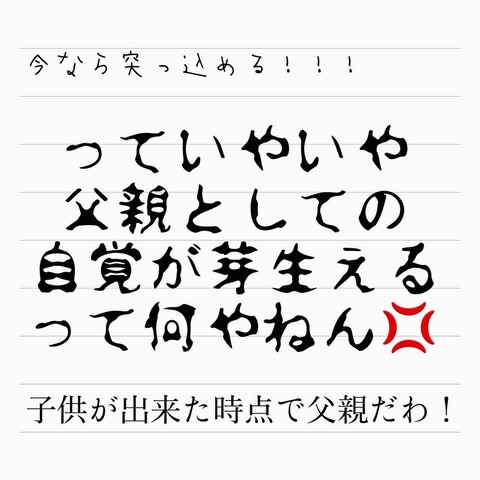 今なら突っ込める！！！
っていやいや
父親としての
自覚が芽生える
って何やねん💢
子供が出来た時点で父親だわ！